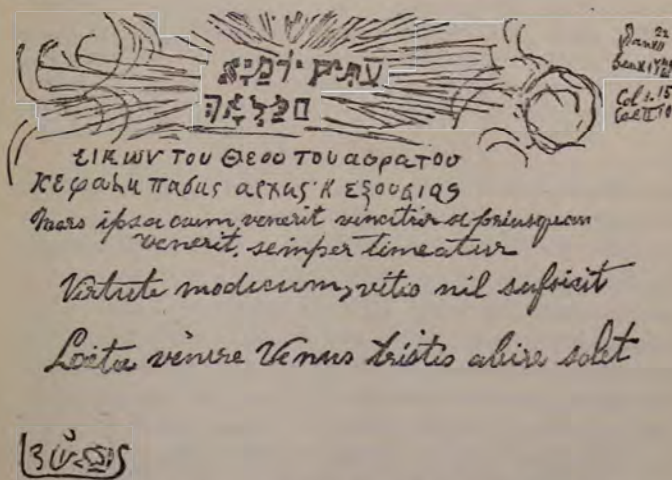 עתיק יומיא
εικων του Θεου του αορατου
κεφαλη πασης αρχης κ εξουσιας
Mors ipsa cum venerit vincitur si priusquam
venerit, semper timeatur
Virtute modicum, vitio nil suficit
Loeta venire Venus tristis abire solet
22
Col 1.15
Col II 10